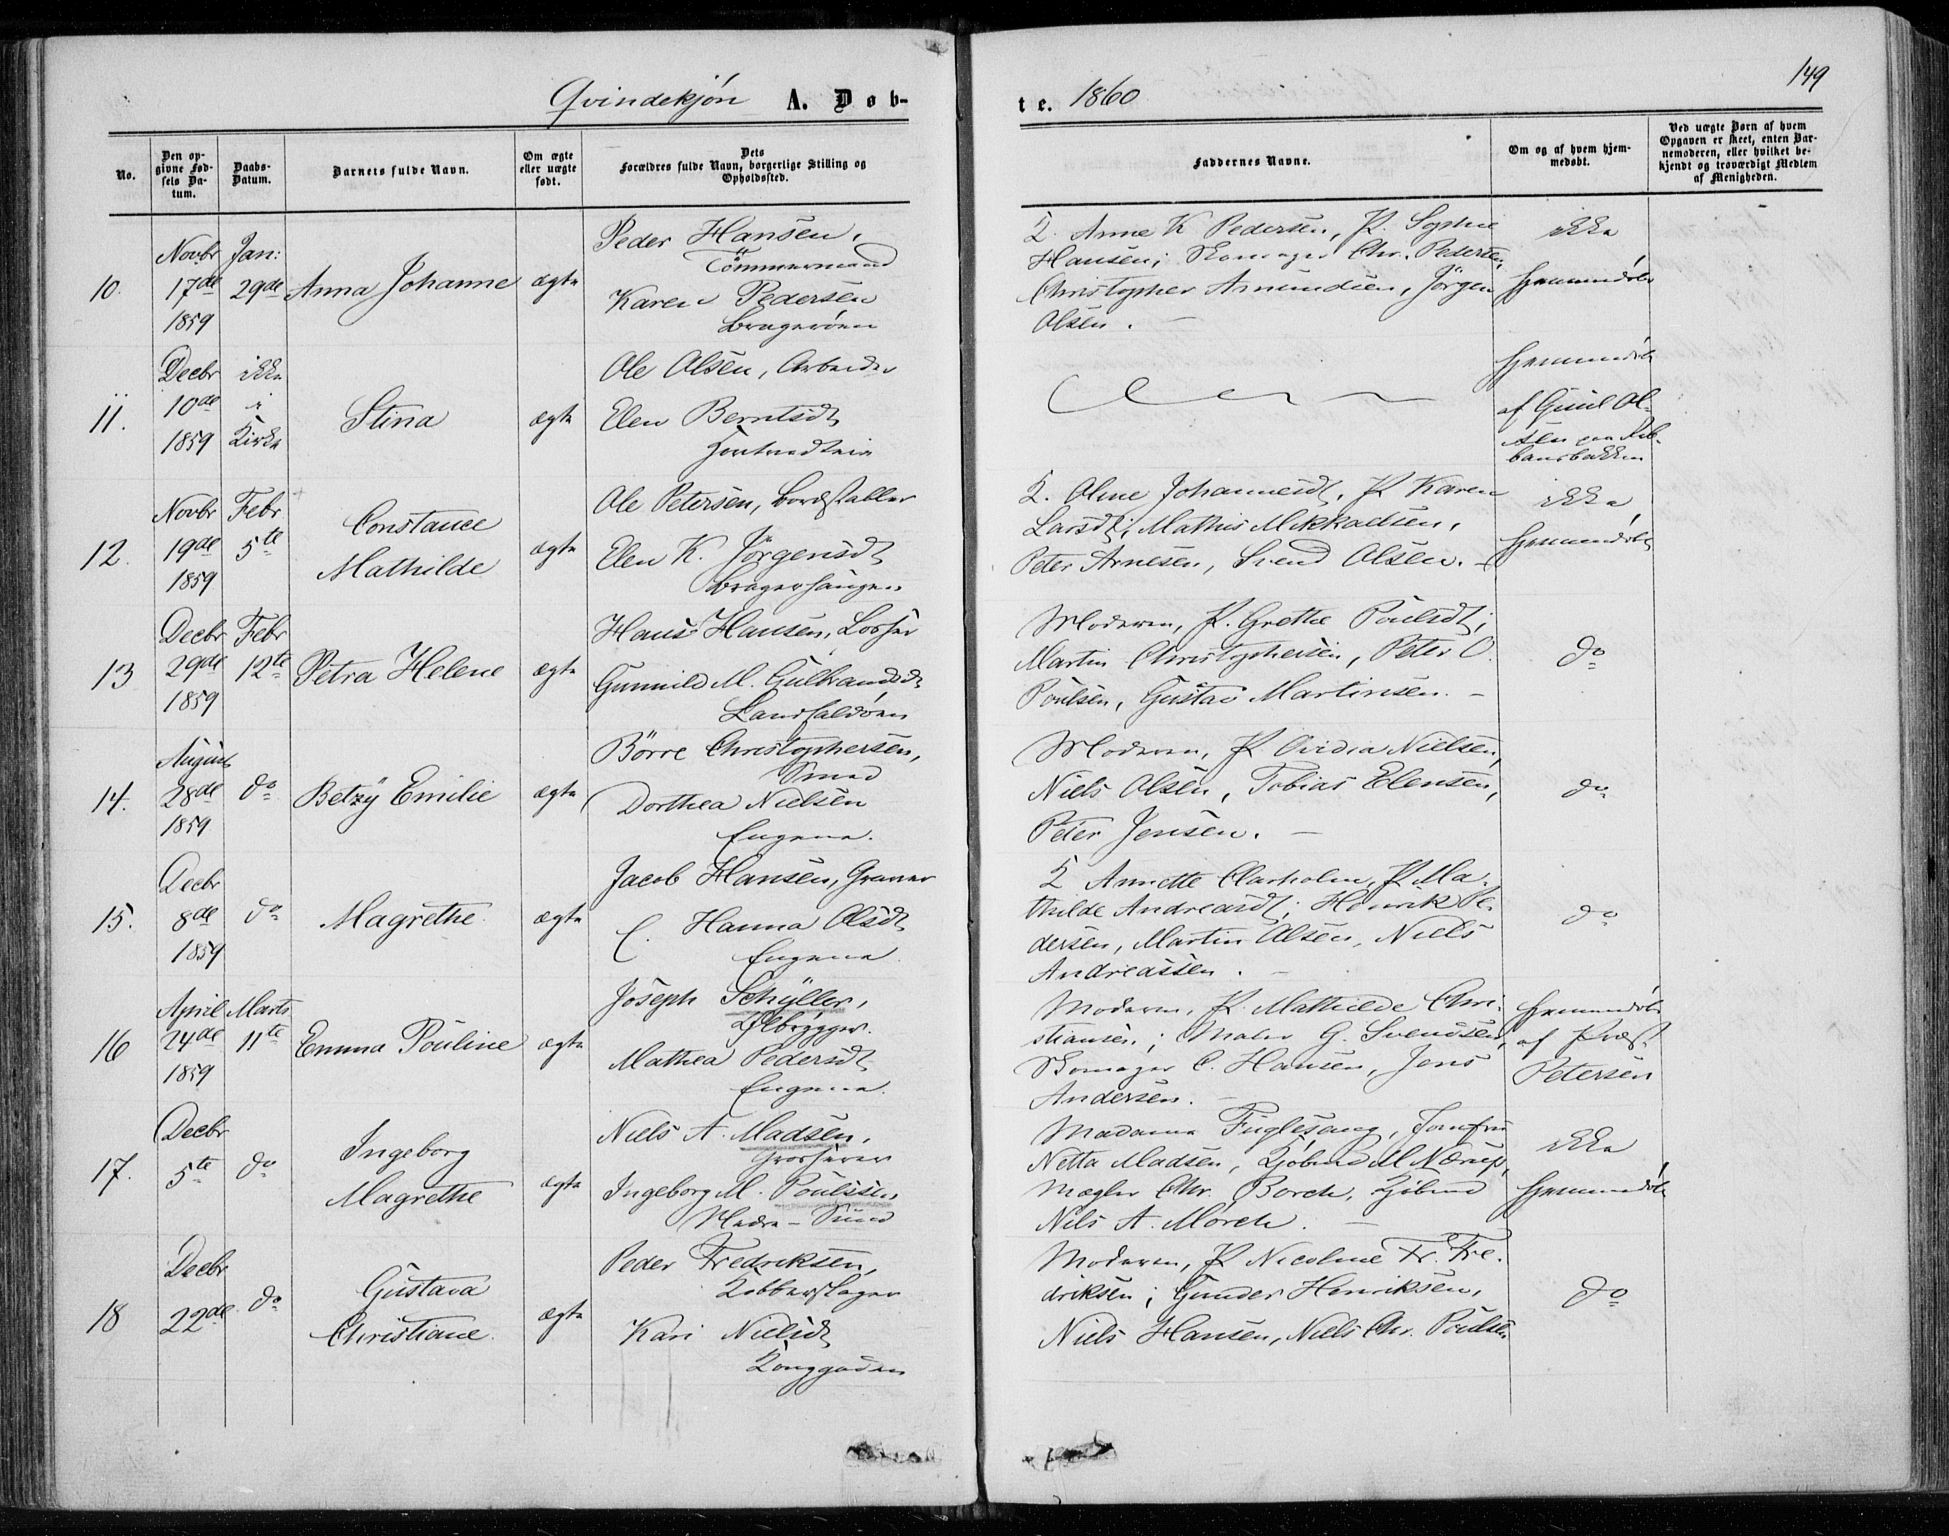 149
Qvindekjön A. Døb-
te. 1860
No.
Den op-
givne Fød-
sels Da-
tum.
Daabs-
Datum.
Barnets fulde Navn.
Om ægte
eller uægte
født.
Dets
Forældres fulde Navn, borgerlige Stilling og
Opholdssted.
Faddernes Navne.
Om og af hvem hjem-
medøbt.
Ved uægte Børn af hvem
Opgaven er skeet, enten Bar-
nemoderen, eller hvilket be-
kjendt og troværdigt Medlem
af Menigheden.
10.
Novbr
17de
1859
Jan:
29de
Anna Johanne
ægte
Peder Hansen,
Tömmermand
Karen Pedersen
Bragerøen
K. Anne K Pedersen, P. Sophie
Hansen; Skomager Chr. Pedersen,
Christopher Amundsen, Jörgen
Olsen. -
ikke
hjemmedöbt
11.
Decbr
10de
1859
ikke
i
Kirke
Stina
ægte
Ole Olsen, Arbeider
Elen Berntsdt
hjemmedöbt
af Gunil Ol-
sen paa
12.
Novbr
19de
1859
Febr
5te
Constance
Mathilde
ægte
Ole Petersen, Bordstabler
Elen K. Jörgensdt
Bragerhaugen
K. Oline Johannesdt, P Karen
Larsdt; Mathis Mikkaelsen,
Peter Arnesen, Svend Olsen. -
ikke
hjemmedöbt
13
Decbr
29de
1859
Febr
12te
Petra Helene
ægte
Hans Hansen, Losser
Gunnild M. Gulbrandsdt
Landfaldöen
Moderen, P. Grethe Poulsdt;
Martin Christophersen, Peter O.
Poulsen, Gustav Martinsen. -
do
14.
August
28de
1859
do
Betzy Emilie
ægte
Börre Christophersen,
Smed
Dorthea Nielsen
Engene.
Moderen, P. Ovidia Nielsen,
Niels Olsen, Tobias Elensen,
Peter Jensen. -
do
15.
Decbr
8de
1859
do
Magrethe
ægte
Jacob Hansen, Graver
C. Hanna Olsdt
Engene.
K Annette Clasholm, P. Ma-
thilde Andreasdt; Henrik Pe-
dersen, Martin Olsen, Niels
Andreassen. -
do
16
April
24de
1859
Marts
11te
Emma Pouline
ægte
Joseph Schyller,
Ølbrygger.
Mathea Pedersdt
Engene.
Moderen, P. Mathilde Chri-
stiansen; Maler G. Svendsen,
Skomager C. Hansen, Jens
Andersen. -
hjemmedöbt
af Præst
Petersen
17.
Decbr
5te
do
Ingeborg
Magrethe
ægte
Niels A. Madsen,
Grosserer
Ingeborg M. Poulssen
Nedre-Sund
Madame Fuglesang, Jomfru
Netta Madsen, Kjöbmd M. Nærup,
Mægler Chr. Borch, Kjöbmd
Nils A. Mörch. -
ikke
hjemmedöbt
18
Decbr
22de
do
Gustava
Christiane.
ægte
Peder Fredriksen,
Kobberslager
Kari Nielsdt
Konggaden
Moderen, P Nicoline Fr. Fre-
driksen; Gunder Henriksen,
Niels Hansen, Niels Chr. Poulsen
do